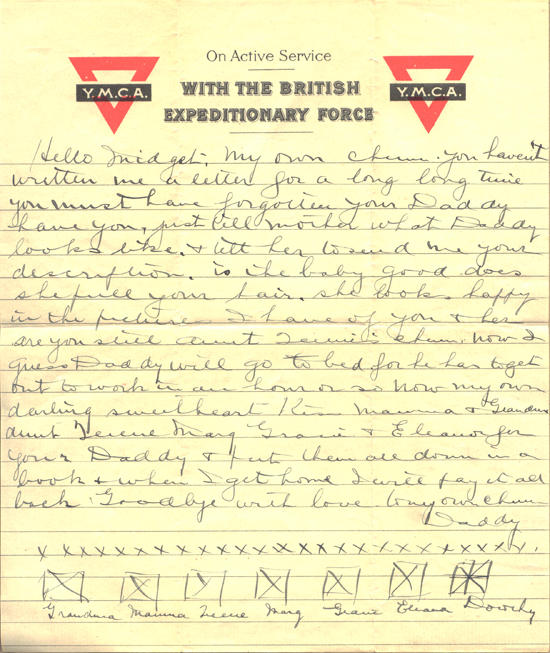 On Active Service
Y.M.C.A.
WITH THE BRITISH
Y.M.C.A.
EXPEDITIONARY FORCE
Hello Midget, My own chum. you haven't
written me a letter for a long long time
you must have forgotten your Daddy
have you, just tell mother what Daddy
looks like. & tell her to send me your
description. is the baby good does
she pull your hair. she looks happy
in the picture I have of you & her
are you still aunt chum. now I
guess Daddy will go to bed for he has to get
out to work in an hour or so now my own
darling sweetheart Kiss Mamma & Grandma
Aunt Marg Gracie & Eleanor for
your Daddy & put them all down in a
book & when I get home I will pay it all
back. Goodbye with love to my own chum
Daddy
x x x x x x x x x x x x x x x x x x x x x x x x x x x x
Grandma Mamma Marg Gracie Eleanor